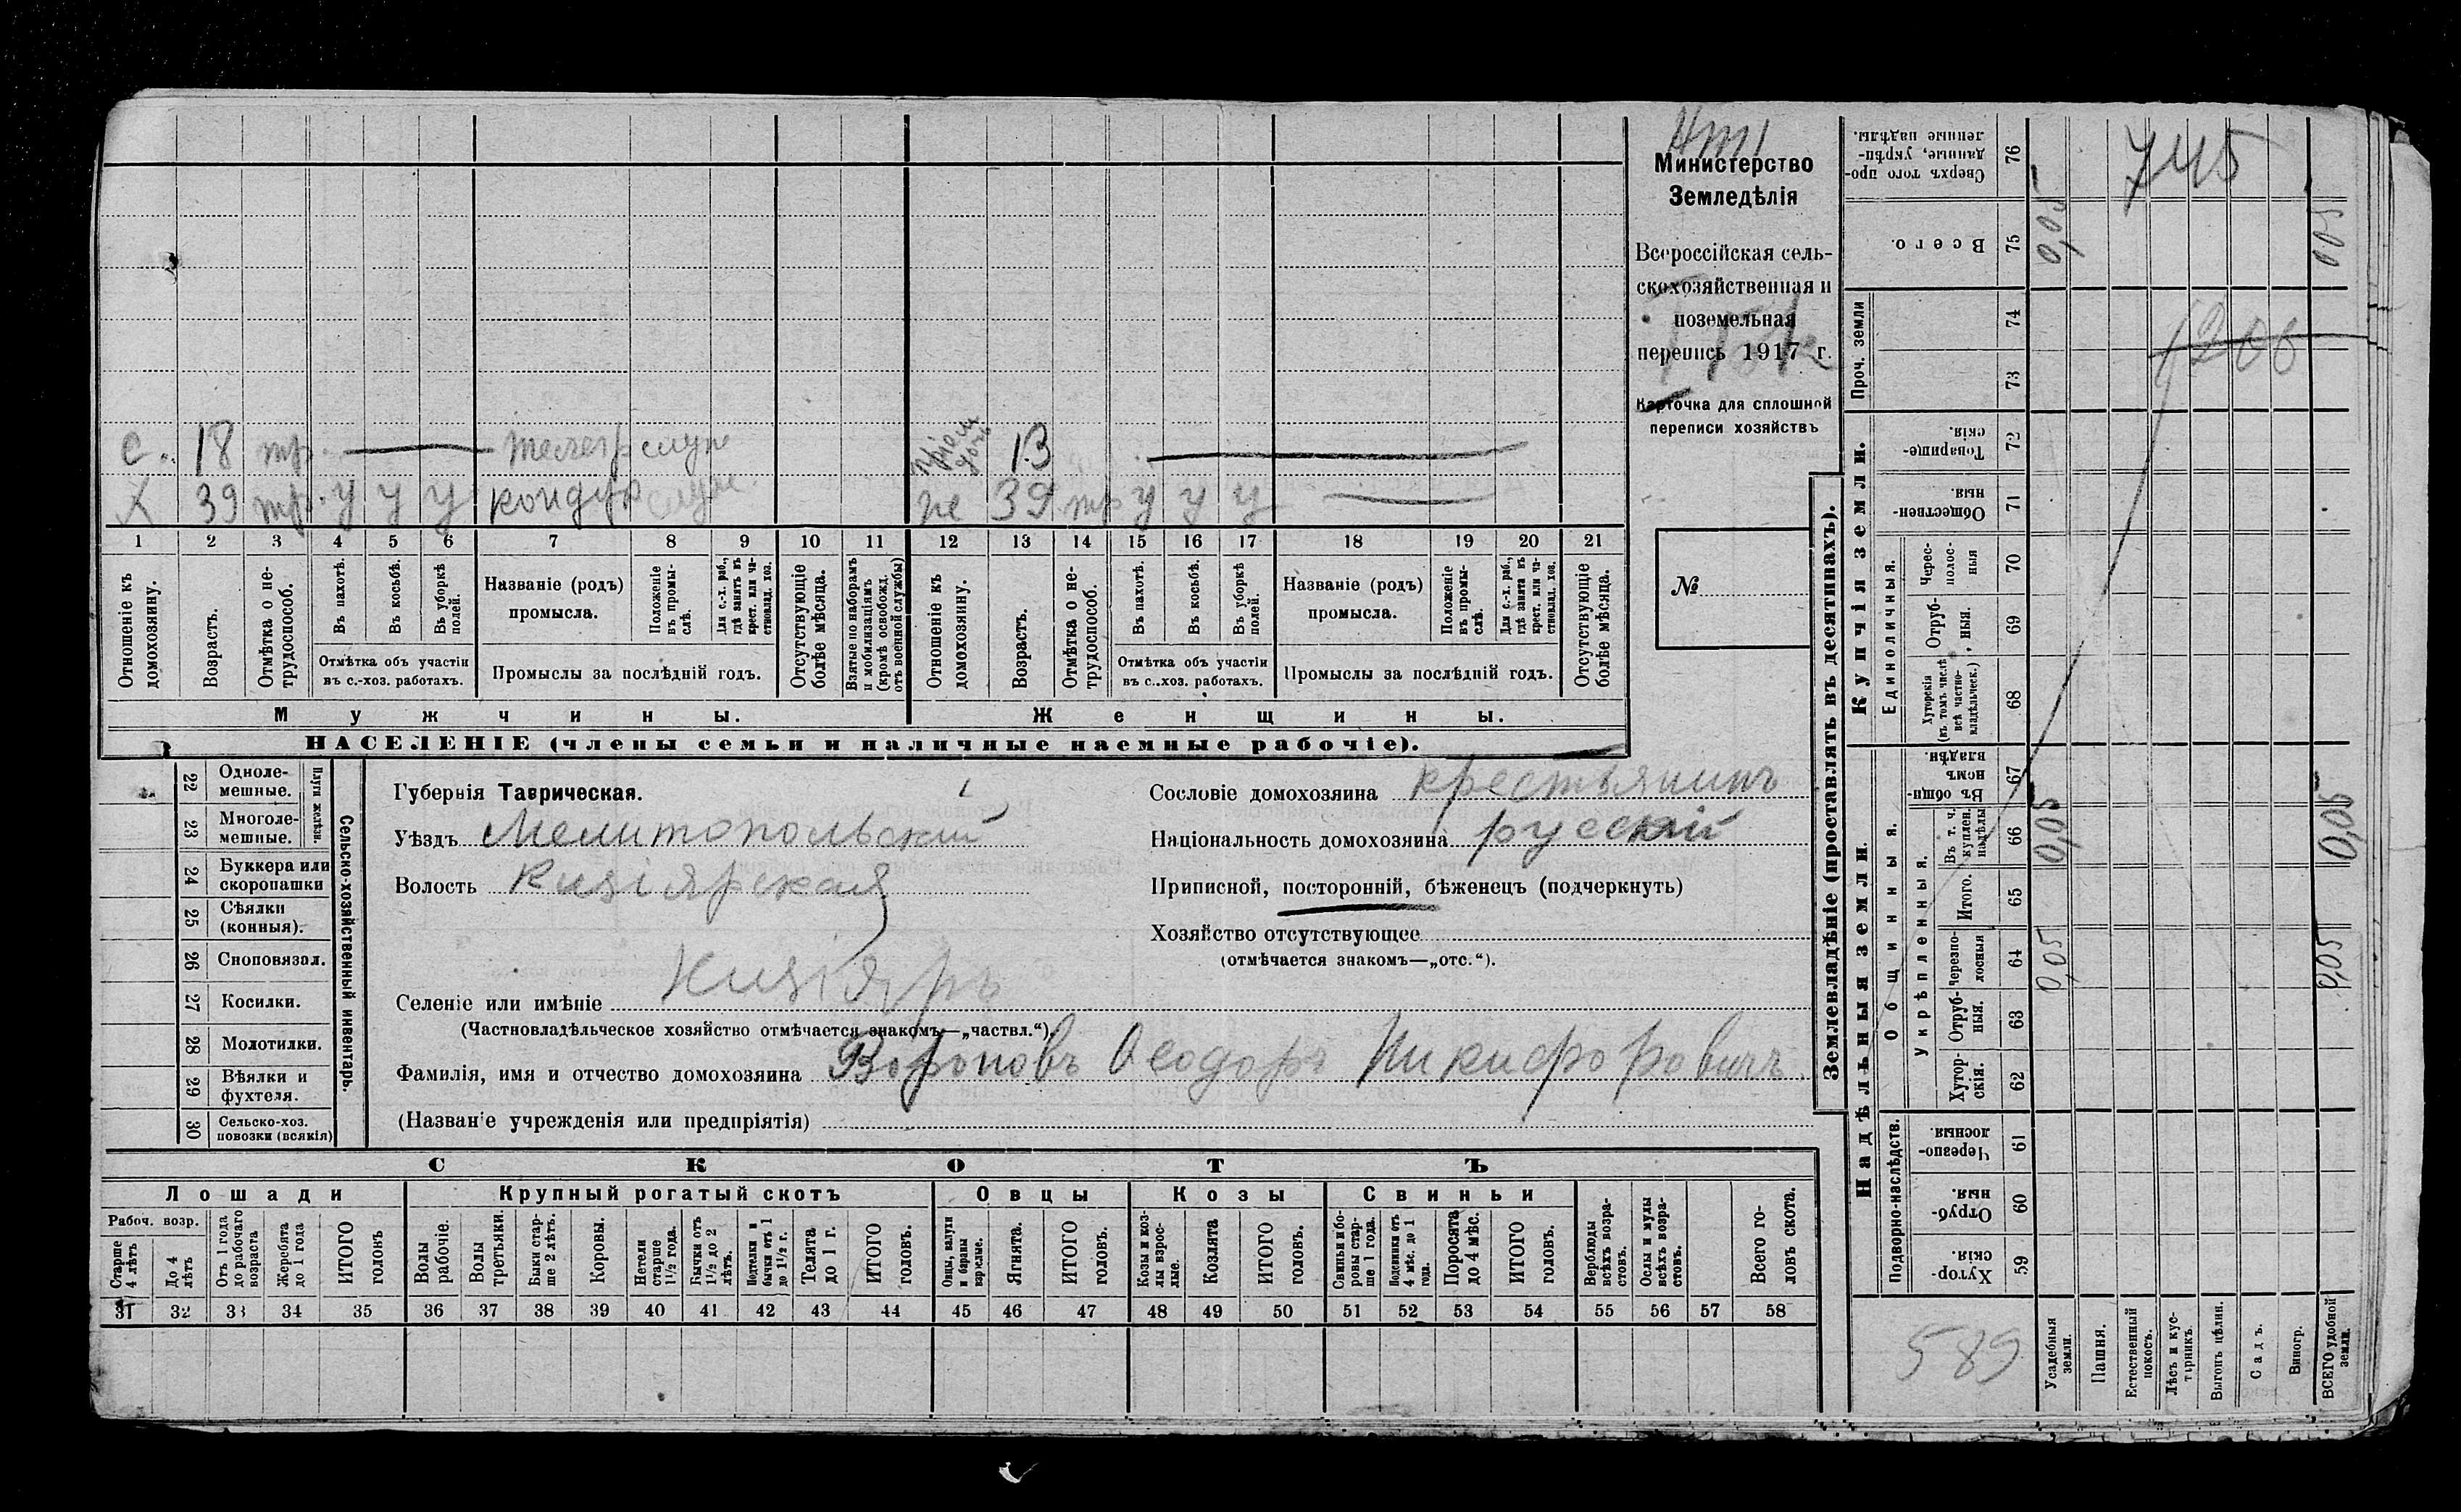 Министерство
Земледѣлія
Всероссійская сель-
скохозяйственная и
поземельная
перепись 1917 г.
Карточка для сплошной
переписи хозяйствъ
№
с. 18 тр. телегр служ
13
Х 39 тр. у у у кондук служ.
ж 39 тр у у у
1 2 3 4 5 6 7 8 9 10 11 12 13 14 15 16 17 18 19 20 21
Отношеніе къ домохозяину.
Возрастъ.
Отмѣтка о не-трудоспособ.
Въ пахотѣ.
Въ косьбѣ.
Въ уборкѣ полей.
Отмѣтка объ участіи
въ с.-хоз. работахъ.
Названіе (родъ)
промысла.
Положеніе въ промы-слѣ.
Для с.-х. раб., гдѣ занятъ въ крест. или ча-стновлад. хоз.
Промыслы за послѣдній годъ.
Отсутствующіе болѣе мѣсяца.
Взятые по наборамъ и мобилизаціямъ (кромѣ освобожд. отъ военной службы)
Отношеніе къ домохозяину.
Возрастъ.
Отмѣтка о не-трудоспособ.
Въ пахотѣ.
Въ косьбѣ.
Въ уборкѣ полей.
Отмѣтка объ участіи
въ с.-хоз. работахъ.
Названіе (родъ)
промысла.
Положеніе въ промы-слѣ.
Для с.-х. раб., гдѣ занята въ крест. или ча-стновлад. хоз.
Промыслы за послѣдній годъ.
Отсутствующіе болѣе мѣсяца.
Мужчины.
Женщины.
НАСЕЛЕНІЕ (члены семьи и наличные наемные рабочіе).
Сельско-хозяйственный инвентарь.
Плуги желѣзн.
22 Одноле-мешные.
23 Многоле-мешные.
24 Буккера или скоропашки
25 Сѣялки (конныя).
26 Сноповязал.
27 Косилки.
28 Молотилки.
29 Вѣялки и фухтеля.
30 Сельско-хоз. повозки (всякія)
Губернія Таврическая.
Уѣздъ Мелитопольскій
Волость Кизіярская
Селеніе или имѣніе Кизіяръ
(Частновладѣльческое хозяйство отмѣчается знакомъ—„частвл.“).
Фамилія, имя и отчество домохозяина Вороновъ Ѳеодоръ Никифоровичъ
(Названіе учрежденія или предпріятія)
Сословіе домохозяина крестьянинъ
Національность домохозяина русскій
Приписной, посторонній, бѣженецъ (подчеркнуть)
Хозяйство отсутствующее
(отмѣчается знакомъ—„отс.“).
СКОТЪ
Лошади
Крупный рогатый скотъ
Овцы
Козы
Свиньи
Рабоч. возр.
Старше 4 лѣтъ
До 4 лѣтъ
Отъ 1 года до рабочаго возраста
Жеребята до 1 года
ИТОГО головъ
Волы рабочіе.
Волы третьяки.
Быки стар-ше 2 лѣтъ.
Коровы.
Нетели старше 1½ года.
Бычки отъ 1½ до 2 лѣтъ.
Подтелки и бычки отъ 1 до 1½ г.
Телята до 1 г.
ИТОГО головъ.
Овцы, валухи и бараны взрослые.
Ягнята.
ИТОГО головъ.
Козы и коз-лы взрос-лые.
Козлята
ИТОГО головъ.
Свиньи и бо-ровы стар-ше 1 года.
Подсвинки отъ 4 мѣс. до 1 года.
Поросята до 4 мѣс.
ИТОГО головъ.
Верблюды всѣхъ возра-стовъ.
Ослы и мулы всѣхъ возра-стовъ.
Всего го-ловъ скота.
31 32 33 34 35 36 37 38 39 40 41 42 43 44 45 46 47 48 49 50 51 52 53 54 55 56 57 58
Землевладѣніе (проставлять въ десятинахъ).
Надѣльныя земли.
Купчія земли.
Проч. земли
Подворно-наслѣдств.
Общинныя.
Укрѣпленныя.
Единоличныя.
76 Сверхъ того про-данные, укрѣп-ленные надѣлы.
75 Всего.
74
73
72 Товарище-скія.
71 Обществен-ныя.
70 Черес-полос-ныя
69 Отруб-ныя.
68 Хуторскія (въ томъ числѣ всѣ частно-владѣльческ.)
67 Въ общин-номъ владѣн.
66 Въ т. ч. куплен. надѣлы
65 Итого.
64 Черезпо-лосныя
63 Отруб-ныя.
62 Хутор-скія.
61 Черезпо-лосныя.
60 Отруб-ныя.
59 Хутор-скія.
745
1206
0,05
005
0,05
0,05
0,05
0,05
589
Усадебныя земли.
Пашня.
Естественный покосъ.
Лѣсъ и кус-тарникъ.
Выгонъ цѣлин.
Садъ.
Виногр.
ВСЕГО удобной земли.